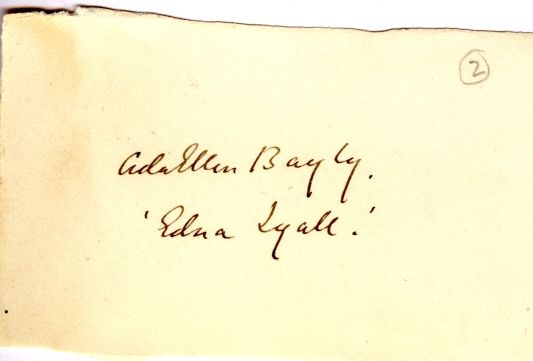 2
Ada Ellen Bayly.
'Edna Lyall.'